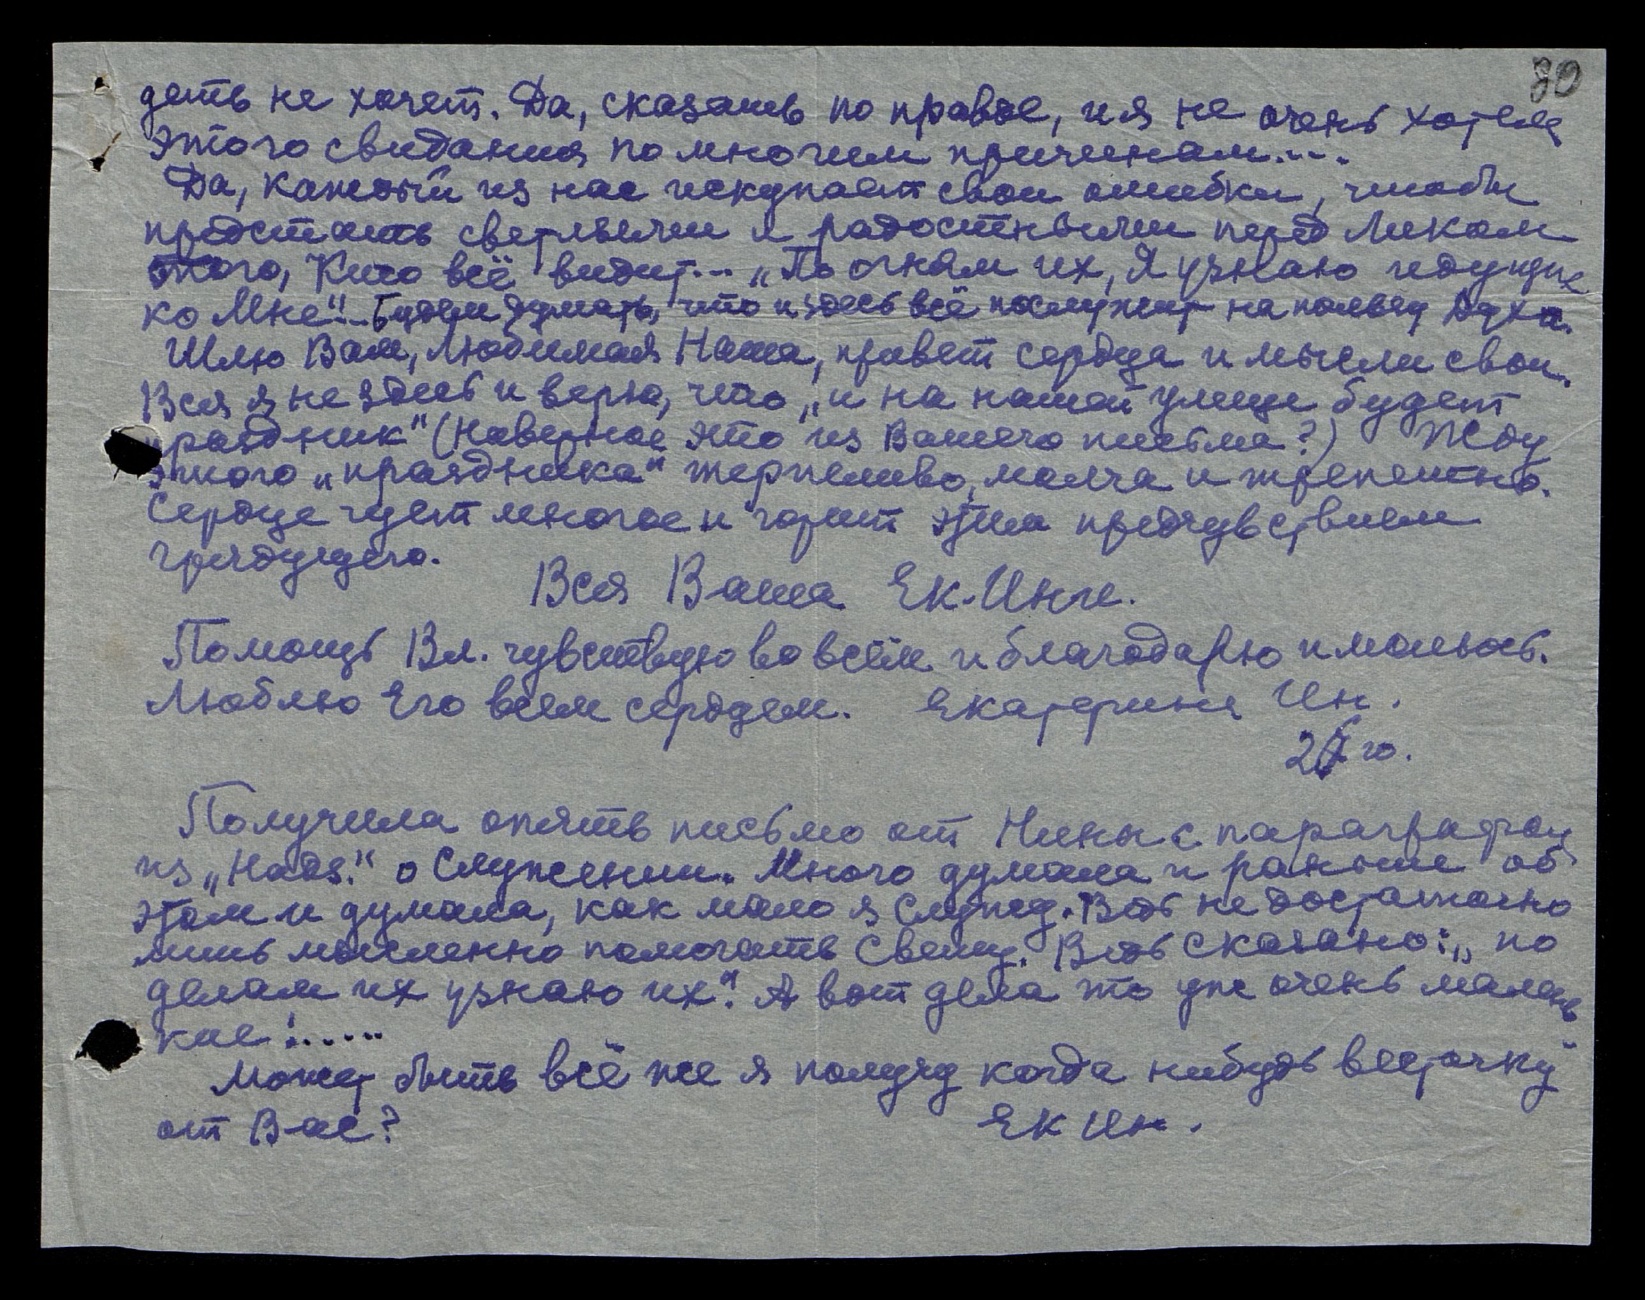 80
деть не хочет. Да, сказать по правде, и я не очень хотела
этого свидания по многим причинам....
Да, каждый из нас искупает свои ошибки, чтобы
предстать светлыми и радостными перед Ликом
того, Кто всё видит... „По огням их, Я узнаю идущих
ко Мне"... Будем думать, что и здесь всё послужит на пользу Духа.
Шлю Вам, Любимая Наша, привет сердца и мысли свои.
Вся я не здесь и верю, что „и на нашей улице будет
праздник" (Наверное это из Вашего письма?) Жду
этого „праздника" терпеливо, молча и трепетно.
Сердце чует многое и горит этим предчувствием
грядущего.
Вся Ваша Ек. Инге.
Помощь Вл. чувствую во всём и благодарю и молюсь.
Люблю Его всем сердцем. Екатерина Ин.
го.
Получила опять письмо от Нины с параграфом
из „Надз." о Служении. Много думала и раньше об
этом и думала, как мало я служу. Ведь не достаточно
лишь мысленно помогать Свету. Ведь сказано: „по
делам их узнаю их". А вот дела то уж очень малень
кие!.....
Может быть всё же я получу когда нибудь весточку
от Вас? Ек Ин.